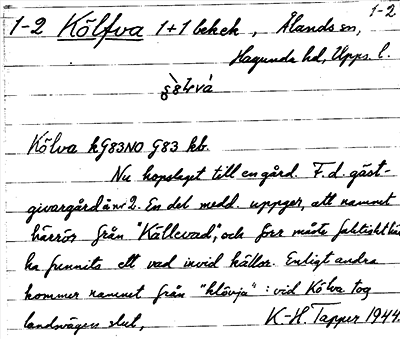 1-2
1-2 Kölfva 1+1 bebeh, Ålands sn,
Hagunda hd, Upps. l.
Kölva kG83NO G83 kb.
Nu hopslaget till en gård. F.d. gäst-
givargård å nr 2. En del medd. uppger, att namnet
härrör från "Källevad", och förr måste faktiskt
ha funnits ett vad invid källor. Enligt andra
kommer namnet från "klövja": vid Kölva tog
landsvägen slut,
K-H. Tapper 1944.